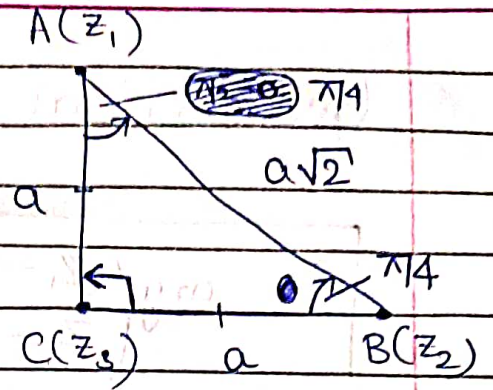 A(z₁)
π/4
a√2
a
π/4
C(z₃)
a
B(z₂)